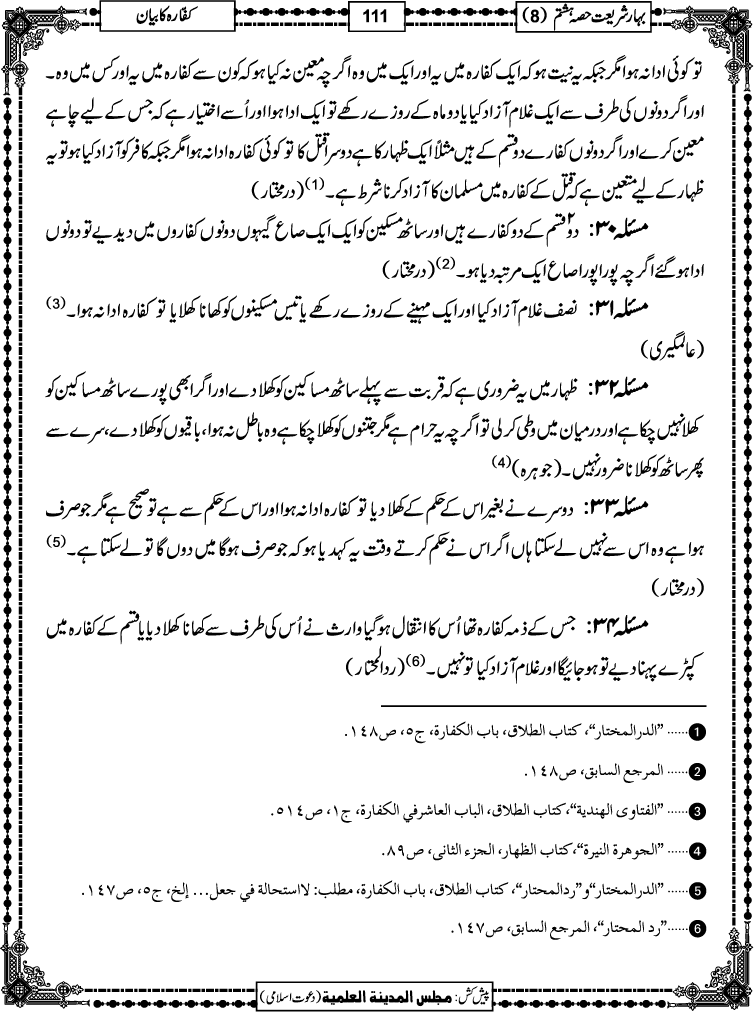 بہارِ شریعت حصہ ہشتم (8)
111
کفارہ کا بیان
تو کوئی ادا نہ ہوا مگر جبکہ یہ نیت ہو کہ ایک کفارہ میں یہ اور ایک میں وہ اگرچہ معین نہ کیا ہو کہ کون سے کفارہ میں یہ اور کس میں وہ۔
اور اگر دونوں کی طرف سے ایک غلام آزاد کیا یا دو ماہ کے روزے رکھے تو ایک ادا ہوا اور اُسے اختیار ہے کہ جس کے لیے چاہے
معین کرے اور اگر دونوں کفارے دو قسم کے ہیں مثلاً ایک ظہار کا ہے دوسرا قتل کا تو کوئی کفارہ ادا نہ ہوا مگر جبکہ کافر کو آزاد کیا ہو تو یہ
ظہار کے لیے متعین ہے کہ قتل کے کفارہ میں مسلمان کا آزاد کرنا شرط ہے۔(1) (درمختار)
مسئلہ ۳۰: دو۲ قسم کے دو کفارے ہیں اور ساٹھ مسکین کو ایک ایک صاع گیہوں دونوں کفاروں میں دیدیے تو دونوں
ادا ہوگئے اگرچہ پورا پورا صاع ایک مرتبہ دیا ہو۔(2) (درمختار)
مسئلہ ۳۱: نصف غلام آزاد کیا اور ایک مہینے کے روزے رکھے یا تیس مسکینوں کو کھانا کھلایا تو کفارہ ادا نہ ہوا۔(3)
(عالمگیری)
مسئلہ ۳۲: ظہار میں یہ ضروری ہے کہ قربت سے پہلے ساٹھ مساکین کو کھلا دے اور اگر ابھی پورے ساٹھ مساکین کو
کھلا نہیں چکا ہے اور درمیان میں وطی کر لی تو اگرچہ یہ حرام ہے مگر جتنوں کو کھلا چکا ہے وہ باطل نہ ہوا، باقیوں کو کھلا دے، سرے سے
پھر ساٹھ کو کھلانا ضرور نہیں۔ (جوہرہ)(4)
مسئلہ ۳۳: دوسرے نے بغیر اس کے حکم کے کھلا دیا تو کفارہ ادا نہ ہوا اور اس کے حکم سے ہے تو صحیح ہے مگر جو صرف
ہوا ہے وہ اس سے نہیں لے سکتا ہاں اگر اس نے حکم کرتے وقت یہ کہدیا ہو کہ جو صرف ہوگا میں دوں گا تو لے سکتا ہے۔(5)
(درمختار)
مسئلہ ۳۴: جس کے ذمہ کفارہ تھا اُس کا انتقال ہوگیا وارث نے اُس کی طرف سے کھانا کھلا دیا یا قسم کے کفارہ میں
کپڑے پہنا دیے تو ہو جائیگا اور غلام آزاد کیا تو نہیں۔(6) (ردالمحتار)
1 ...... ”الدرالمختار“، کتاب الطلاق، باب الکفارۃ، ج٥، ص١٤٨.
2 ...... المرجع السابق، ص١٤٨.
3 ...... ”الفتاوی الھندیۃ“،کتاب الطلاق، الباب العاشرفي الکفارۃ، ج١، ص٥١٤.
4 ...... ”الجوھرۃ النیرۃ“،کتاب الظھار، الجزء الثانی، ص٨٩.
5 ...... ”الدرالمختار“و”ردالمحتار“، کتاب الطلاق، باب الکفارۃ، مطلب: لااستحالة في جعل... إلخ، ج٥، ص١٤٧.
6 ......”رد المحتار“، المرجع السابق، ص١٤٧.
پیش کش: مجلس المدینۃ العلمیۃ (دعوتِ اسلامی)